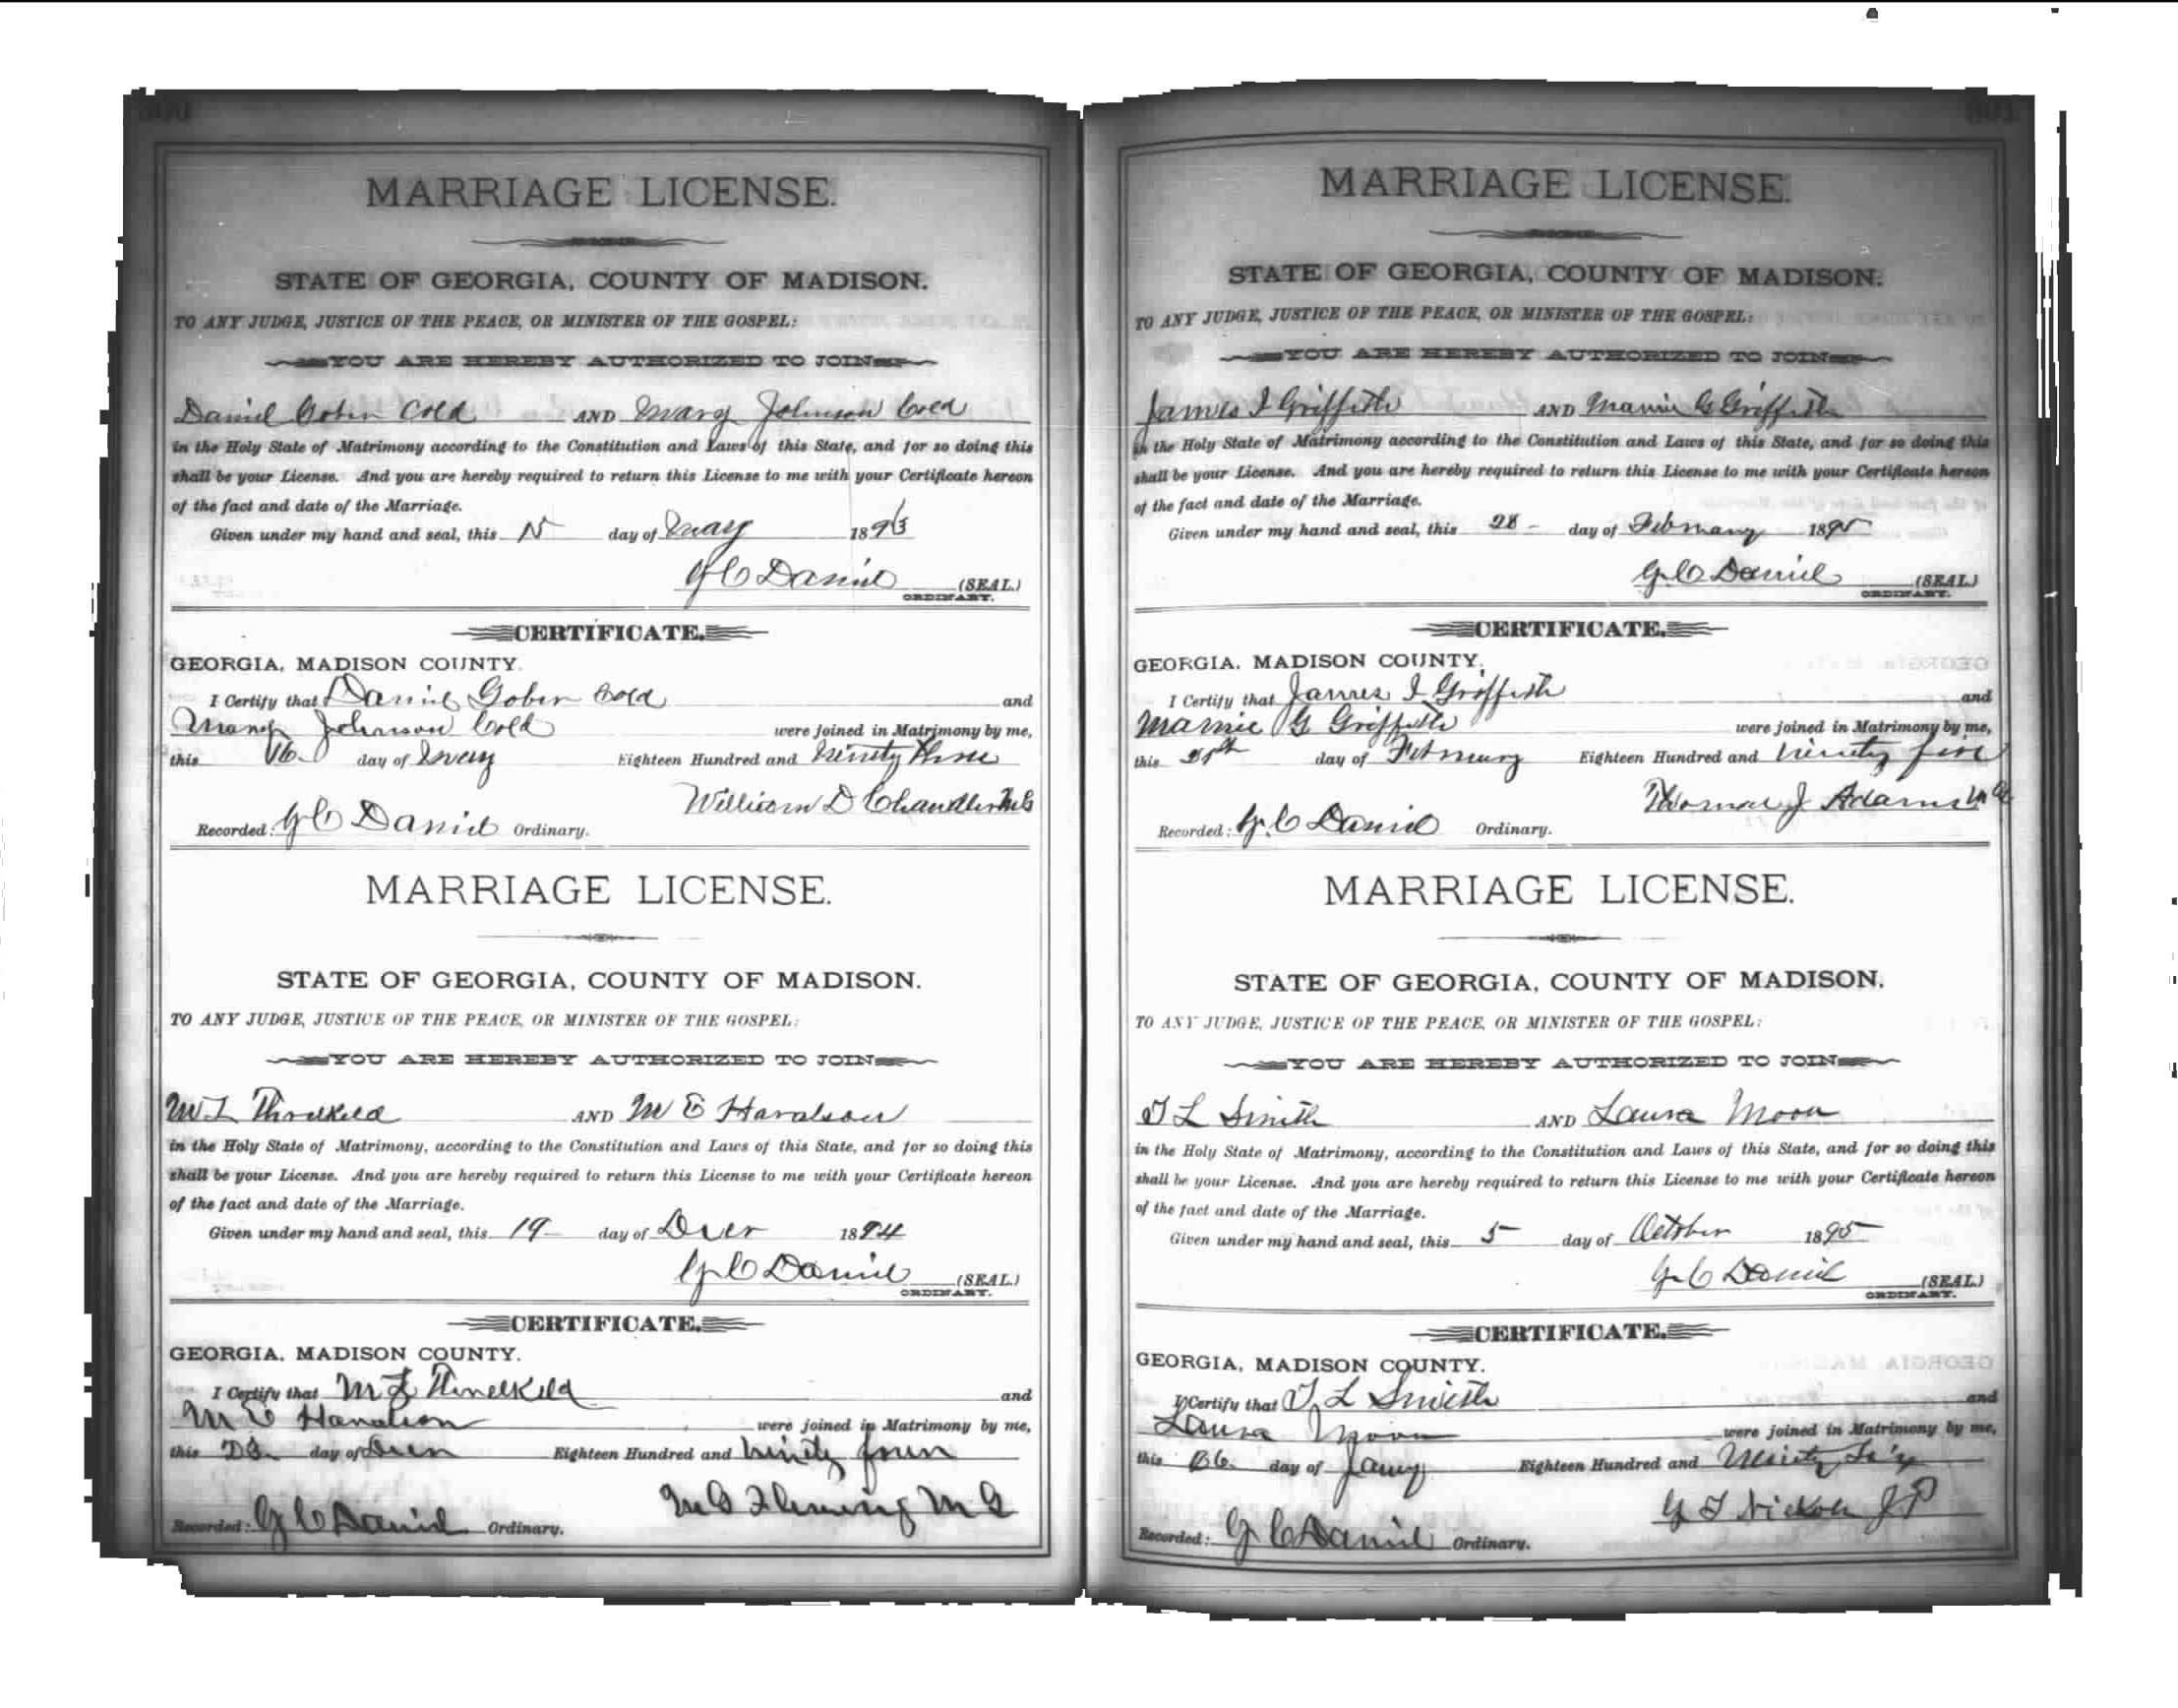 MARRIAGE LICENSE.
STATE OF GEORGIA, COUNTY OF MADISON.
TO ANY JUDGE, JUSTICE OF THE PEACE, OR MINISTER OF THE GOSPEL:
YOU ARE HEREBY AUTHORIZED TO JOIN
Daniel Gober Cold AND Mary Johnson Cold
in the Holy State of Matrimony according to the Constitution and Laws of this State, and for so doing this
shall be your License. And you are hereby required to return this License to me with your Certificate hereon
of the fact and date of the Marriage.
Given under my hand and seal, this day of May 1893
G C Daniel (SEAL.)
ORDINARY.
CERTIFICATE.
GEORGIA, MADISON COUNTY.
I Certify that Daniel Gober Cold and
Mary Johnson Cold were joined in Matrimony by me,
this 16 day of May Eighteen Hundred and Ninety three
William D Chandler M G
Recorded: G C Daniel Ordinary.
MARRIAGE LICENSE.
STATE OF GEORGIA, COUNTY OF MADISON.
TO ANY JUDGE, JUSTICE OF THE PEACE, OR MINISTER OF THE GOSPEL:
YOU ARE HEREBY AUTHORIZED TO JOIN
M L Threlkeld AND M E Haralson
in the Holy State of Matrimony, according to the Constitution and Laws of this State, and for so doing this
shall be your License. And you are hereby required to return this License to me with your Certificate hereon
of the fact and date of the Marriage.
Given under my hand and seal, this 19 day of Decr 1894
G C Daniel (SEAL.)
ORDINARY.
CERTIFICATE.
GEORGIA, MADISON COUNTY.
I Certify that M L Threlkeld and
M E Haralson were joined in Matrimony by me,
this day of Eighteen Hundred and Ninety four
Fleming M G
Recorded: G C Daniel Ordinary.
MARRIAGE LICENSE.
STATE OF GEORGIA, COUNTY OF MADISON.
TO ANY JUDGE, JUSTICE OF THE PEACE, OR MINISTER OF THE GOSPEL:
YOU ARE HEREBY AUTHORIZED TO JOIN
James I Griffith AND Mamie G Griffith
in the Holy State of Matrimony according to the Constitution and Laws of this State, and for so doing this
shall be your License. And you are hereby required to return this License to me with your Certificate hereon
of the fact and date of the Marriage.
Given under my hand and seal, this 28 day of February 1895
G C Daniel (SEAL.)
ORDINARY.
CERTIFICATE.
GEORGIA, MADISON COUNTY.
I Certify that James I Griffith and
Mamie G Griffith were joined in Matrimony by me,
this day of February Eighteen Hundred and Ninety five
Thomas J Adams M G
Recorded: G. C Daniel Ordinary.
MARRIAGE LICENSE.
STATE OF GEORGIA, COUNTY OF MADISON.
TO ANY JUDGE, JUSTICE OF THE PEACE, OR MINISTER OF THE GOSPEL:
YOU ARE HEREBY AUTHORIZED TO JOIN
T L Smith AND Laura Moon
in the Holy State of Matrimony, according to the Constitution and Laws of this State, and for so doing this
shall be your License. And you are hereby required to return this License to me with your Certificate hereon
of the fact and date of the Marriage.
Given under my hand and seal, this 5 day of October 1895
G C Daniel (SEAL.)
ORDINARY.
CERTIFICATE.
GEORGIA, MADISON COUNTY.
I Certify that T L Smith and
Laura Moon were joined in Matrimony by me,
this day of Jany Eighteen Hundred and Ninety Six
J P
Recorded: G C Daniel Ordinary.